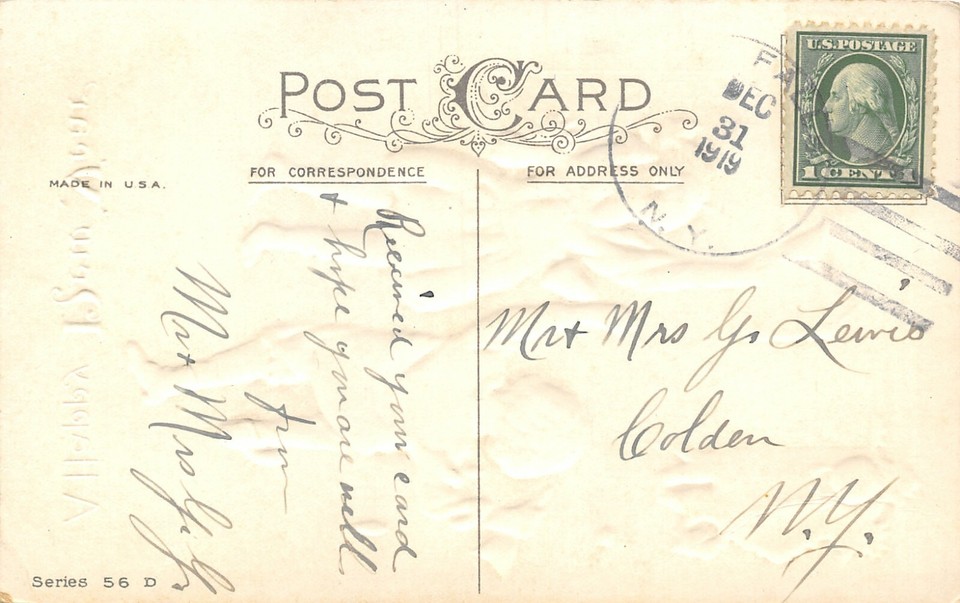 POST CARD
MADE IN U.S.A.
FOR CORRESPONDENCE
FOR ADDRESS ONLY
U.S. POSTAGE
1 CENT 1
DEC
31
1919
N.Y.
Received your card
& hope you are well.
from
Mr & Mrs
Mr & Mrs G. Lewis
Colden
N.Y.
Series 56 D